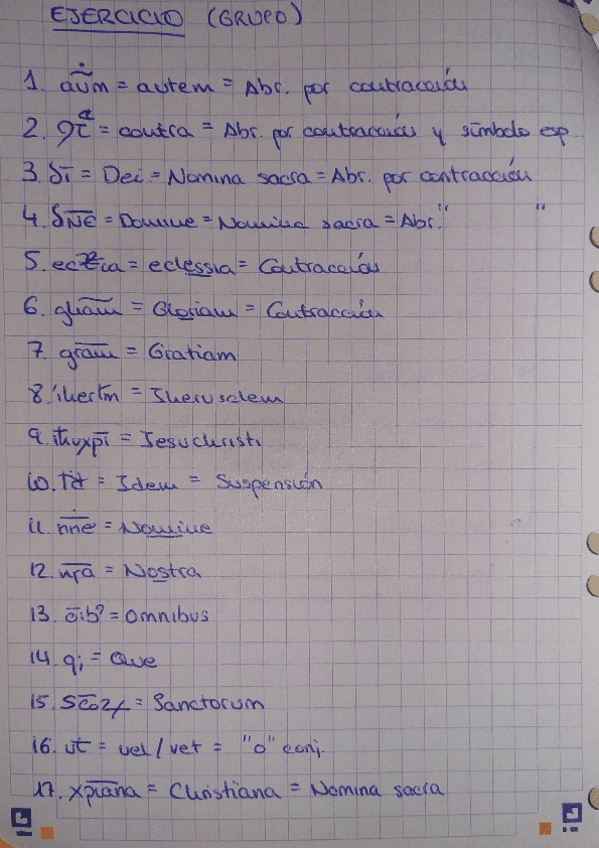 EJERCICIO (GRUPO)
1. aūm = autem = Abr. por contracción
2. 9t̄ᵃ = contra = Abr. por contracción y símbolo esp.
3. δī = Dei = Nomina sacra = Abr. por contracción
4. δN̄Ē = Domine = Nomina sacra = Abr. " "
5. ecɫia = eclessia = Contracción
6. gliam̄ = Gloriam = Contracción
7. gram̄ = Gratiam
8. iherlm̄ = Iherusalem
9. ihuxpī = Iesuchristi
10. Id̄ = Idem = Suspensión
11. nn̄e = Nomine
12. nr̄a = Nostra
13. ōib9 = Omnibus
14. q; = Que
15. Sc̄oꝝ = Sanctorum
16. vt̄ = vel / vet = "o" conj.
17. xpiana = Christiana = Nomina sacra